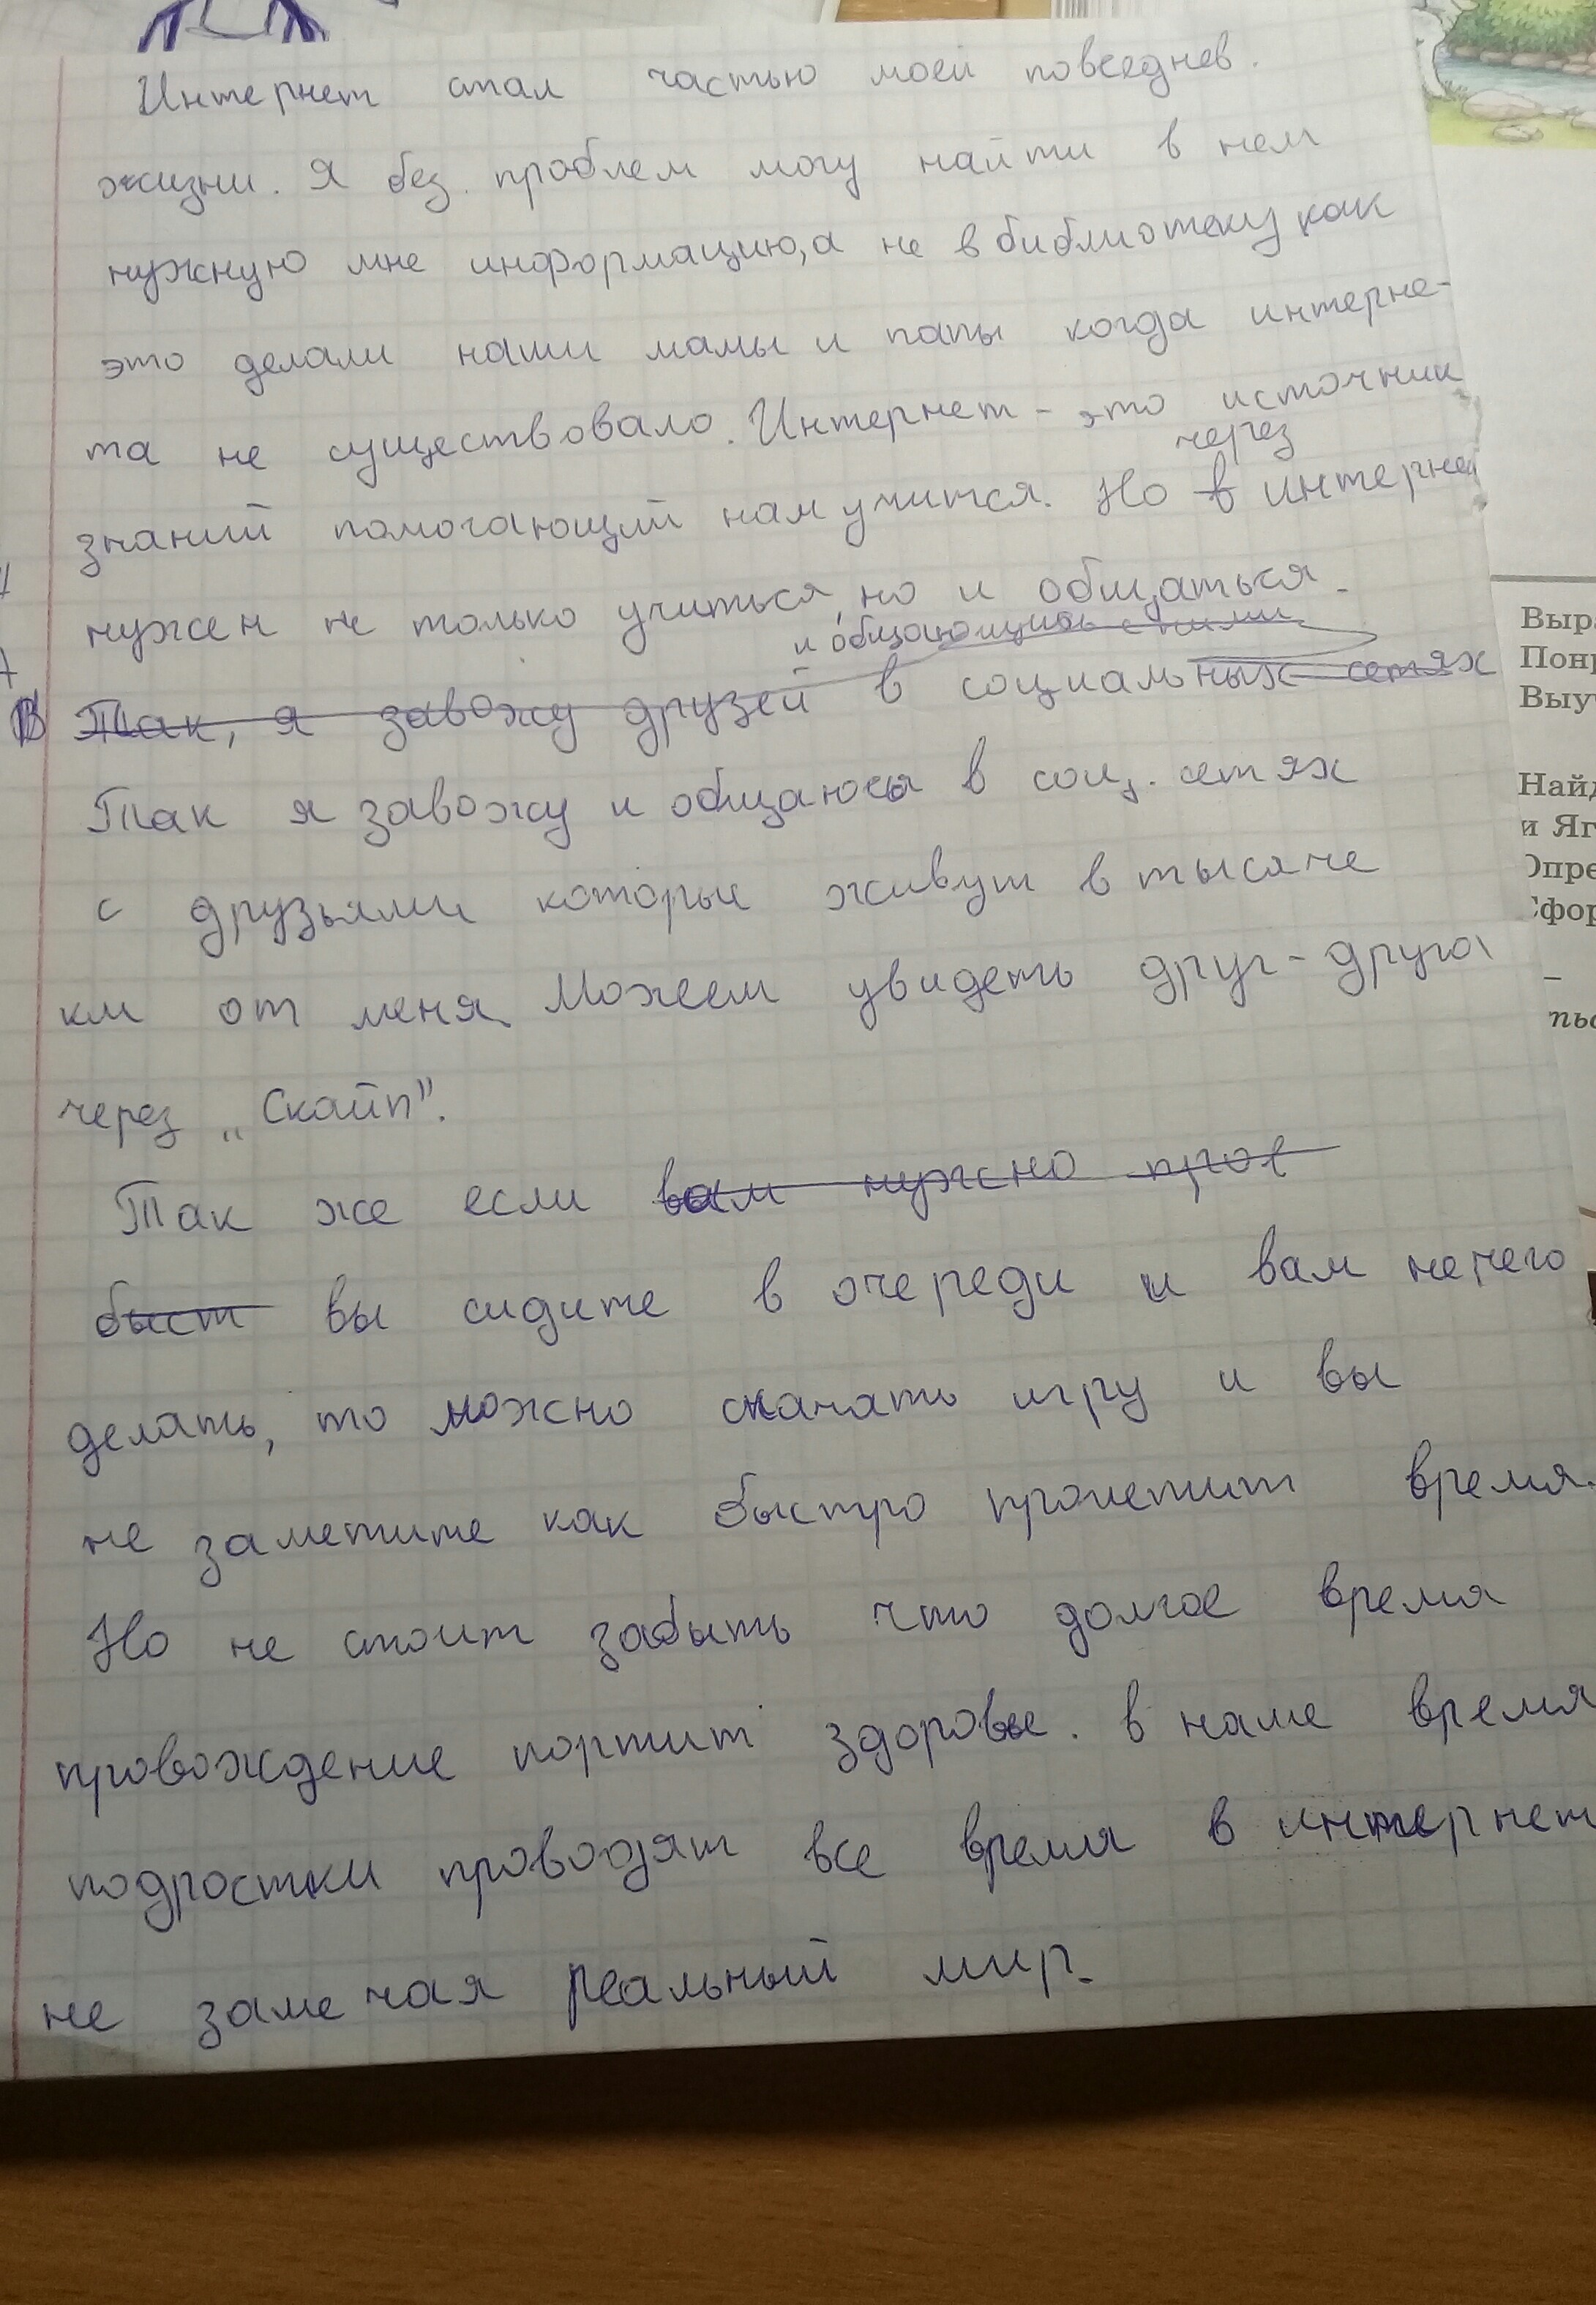 Интернет стал частью моей повседнев.
жизни. Я без проблем могу найти в нем
нужную мне информацию, а не в библиотеку как
это делали наши мамы и папы когда интерне-
та не существовало. Интернет - это источник
знаний помогающий нам учится. Но в интернет
через
нужен не только учиться, но и общаться.
и общающиюсь с ними
В Так, я завожу друзей в социальных сетях
Так я завожу и общаюсь в соц. сетях
с друзьями которые живут в тысяче
км от меня. Можеем увидеть друг-друга
через „Скайп".
Так же если вам нужно пров
быст вы сидите в очереди и вам нечего
делать, то можно скачать игру и вы
не заметите как быстро пролетит время.
Но не стоит забыть что долгое время
провождение портит здоровье. в наше время
подростки проводят все время в интернет
не замечая реальный мир.
Выр
Пон
Выу
Най
и Яг
Опре
Сфор
–